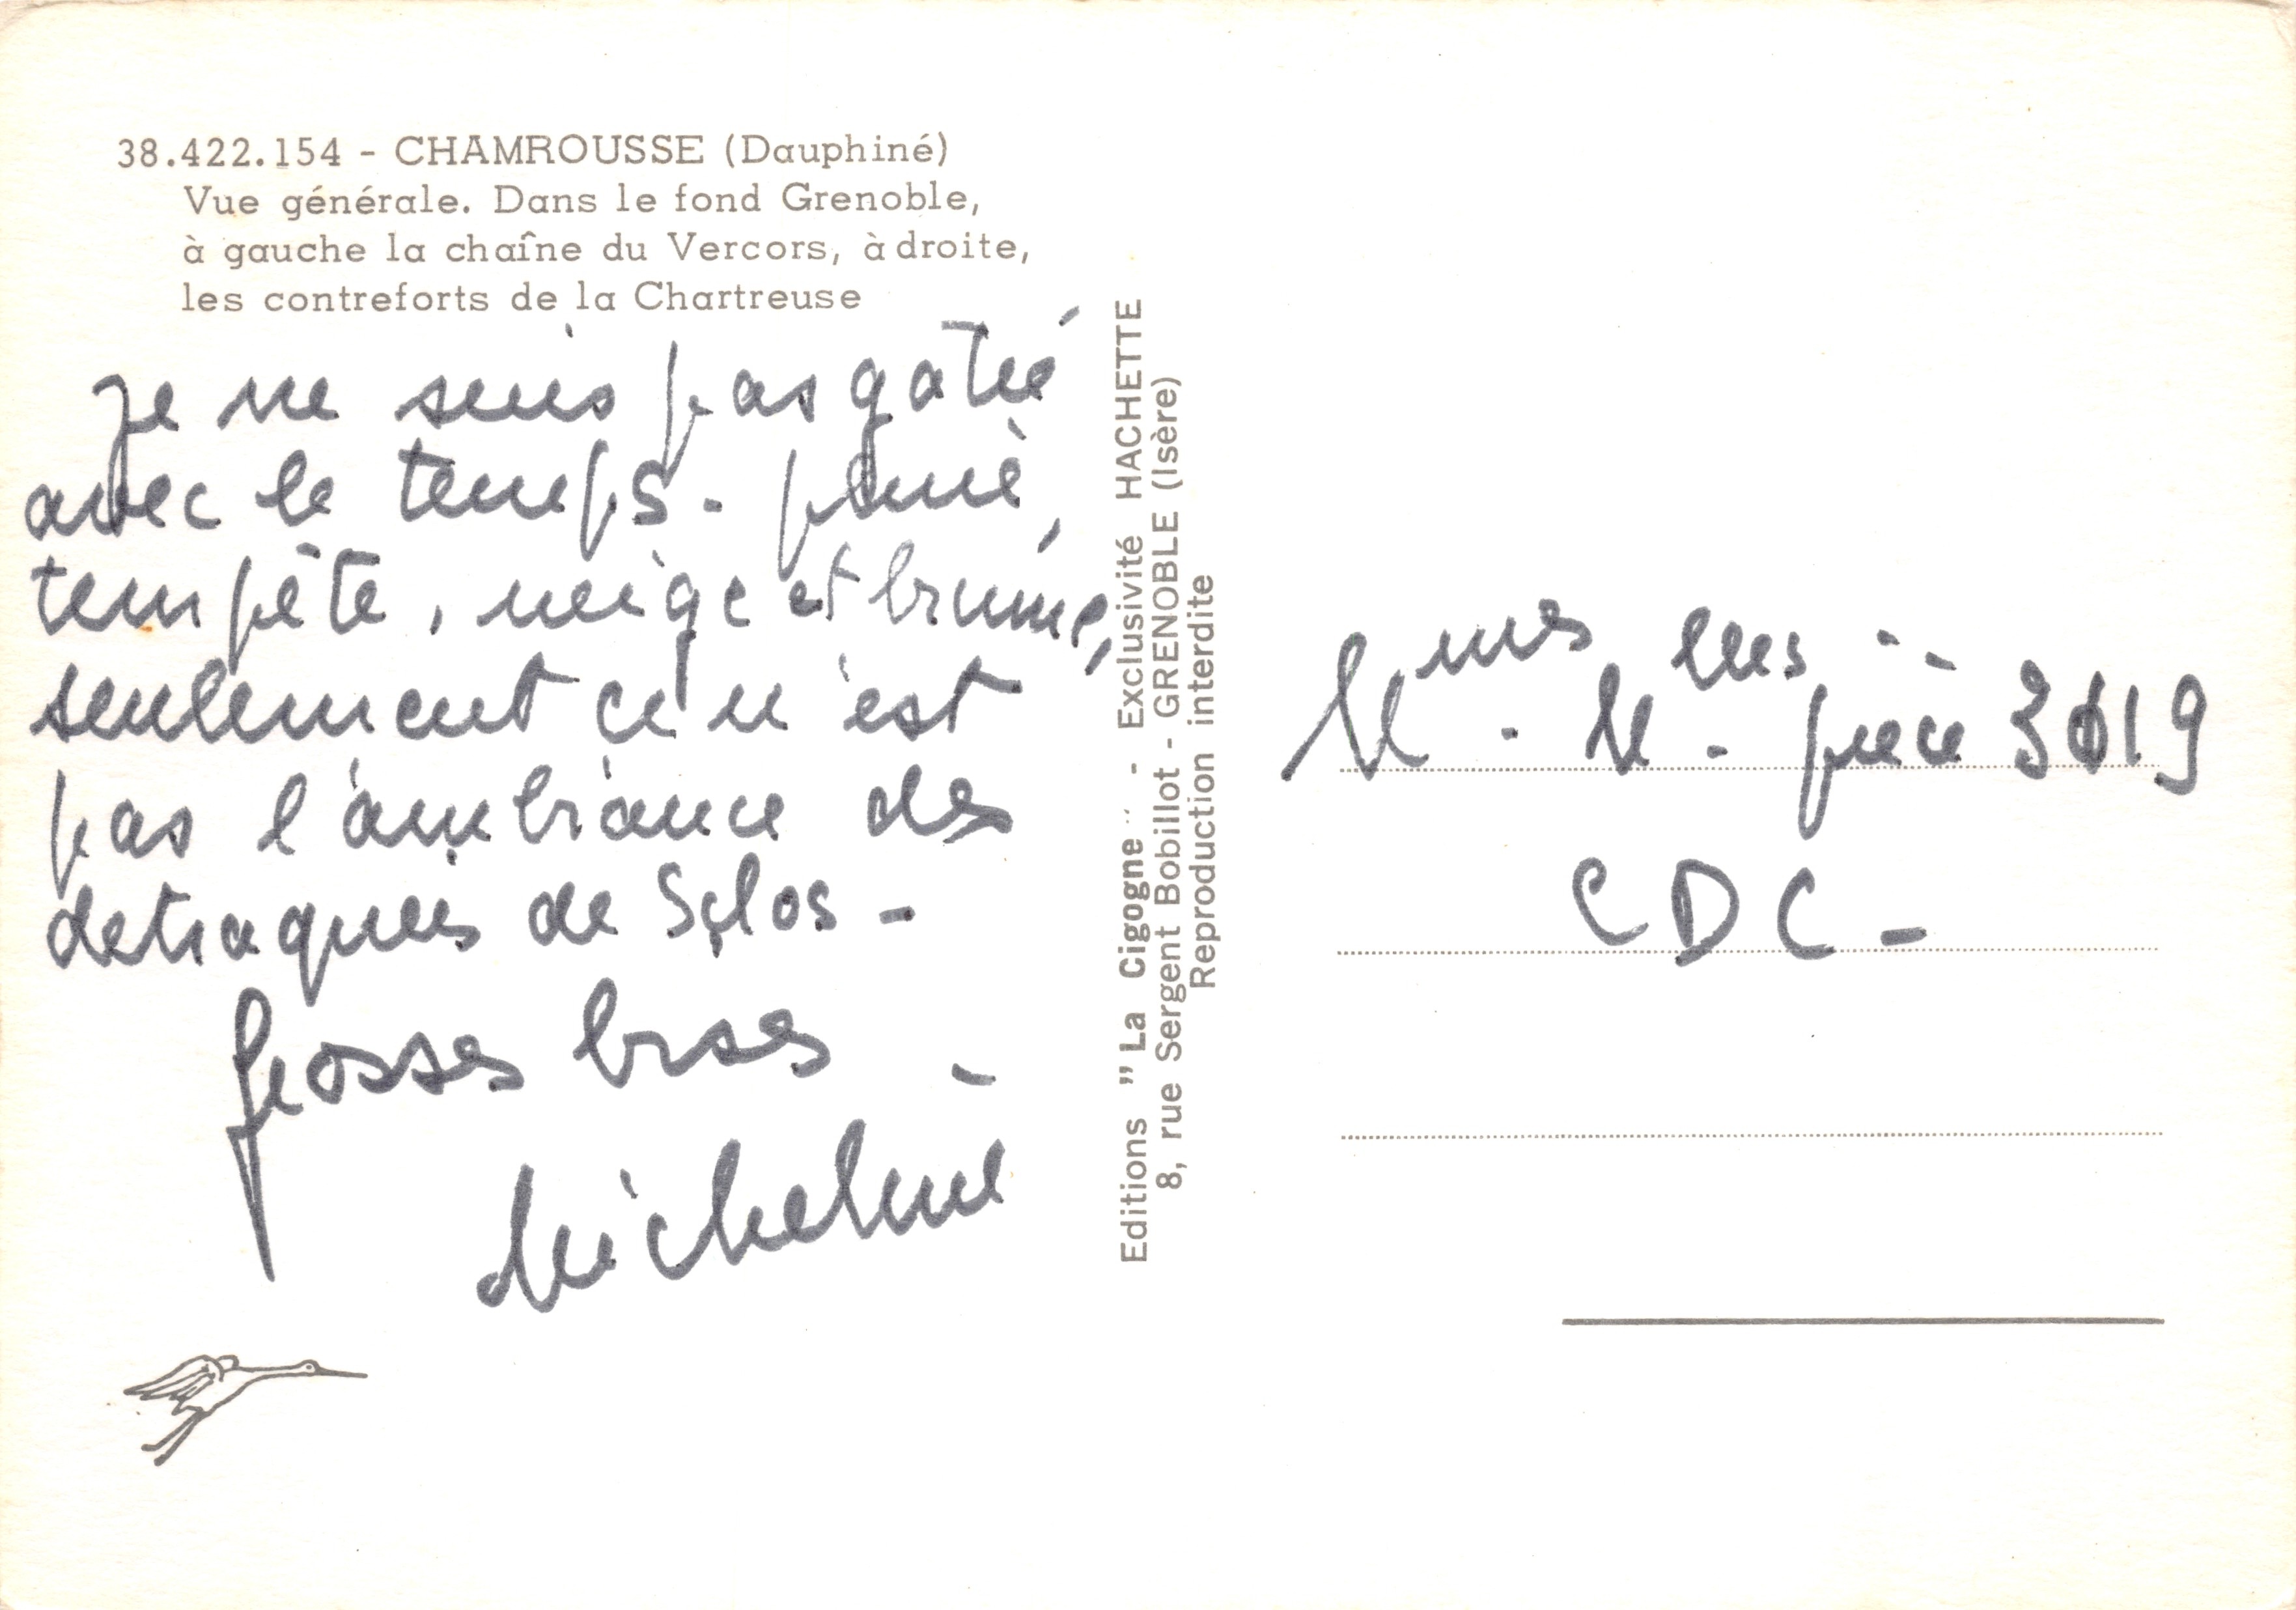 38.422.154 - CHAMROUSSE (Dauphiné)
Vue générale. Dans le fond Grenoble,
à gauche la chaîne du Vercors, à droite,
les contreforts de la Chartreuse
Je ne suis pas gâtée
avec le temps - pluie,
tempête, neige et brume,
seulement ce n'est
pas l'ambiance des
detraquées de
Grosses bises -
Micheline
Editions "La Cigogne" - Exclusivité HACHETTE
8, rue Sergent Bobillot - GRENOBLE (Isère)
Reproduction interdite
Mmes - Melles - pièce 3019
CDC -